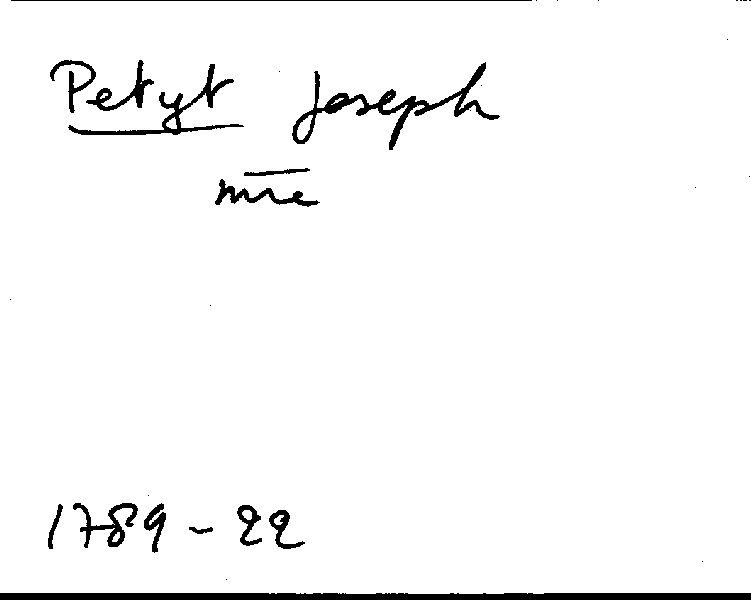 Petyt Joseph
mre
1789 - 22